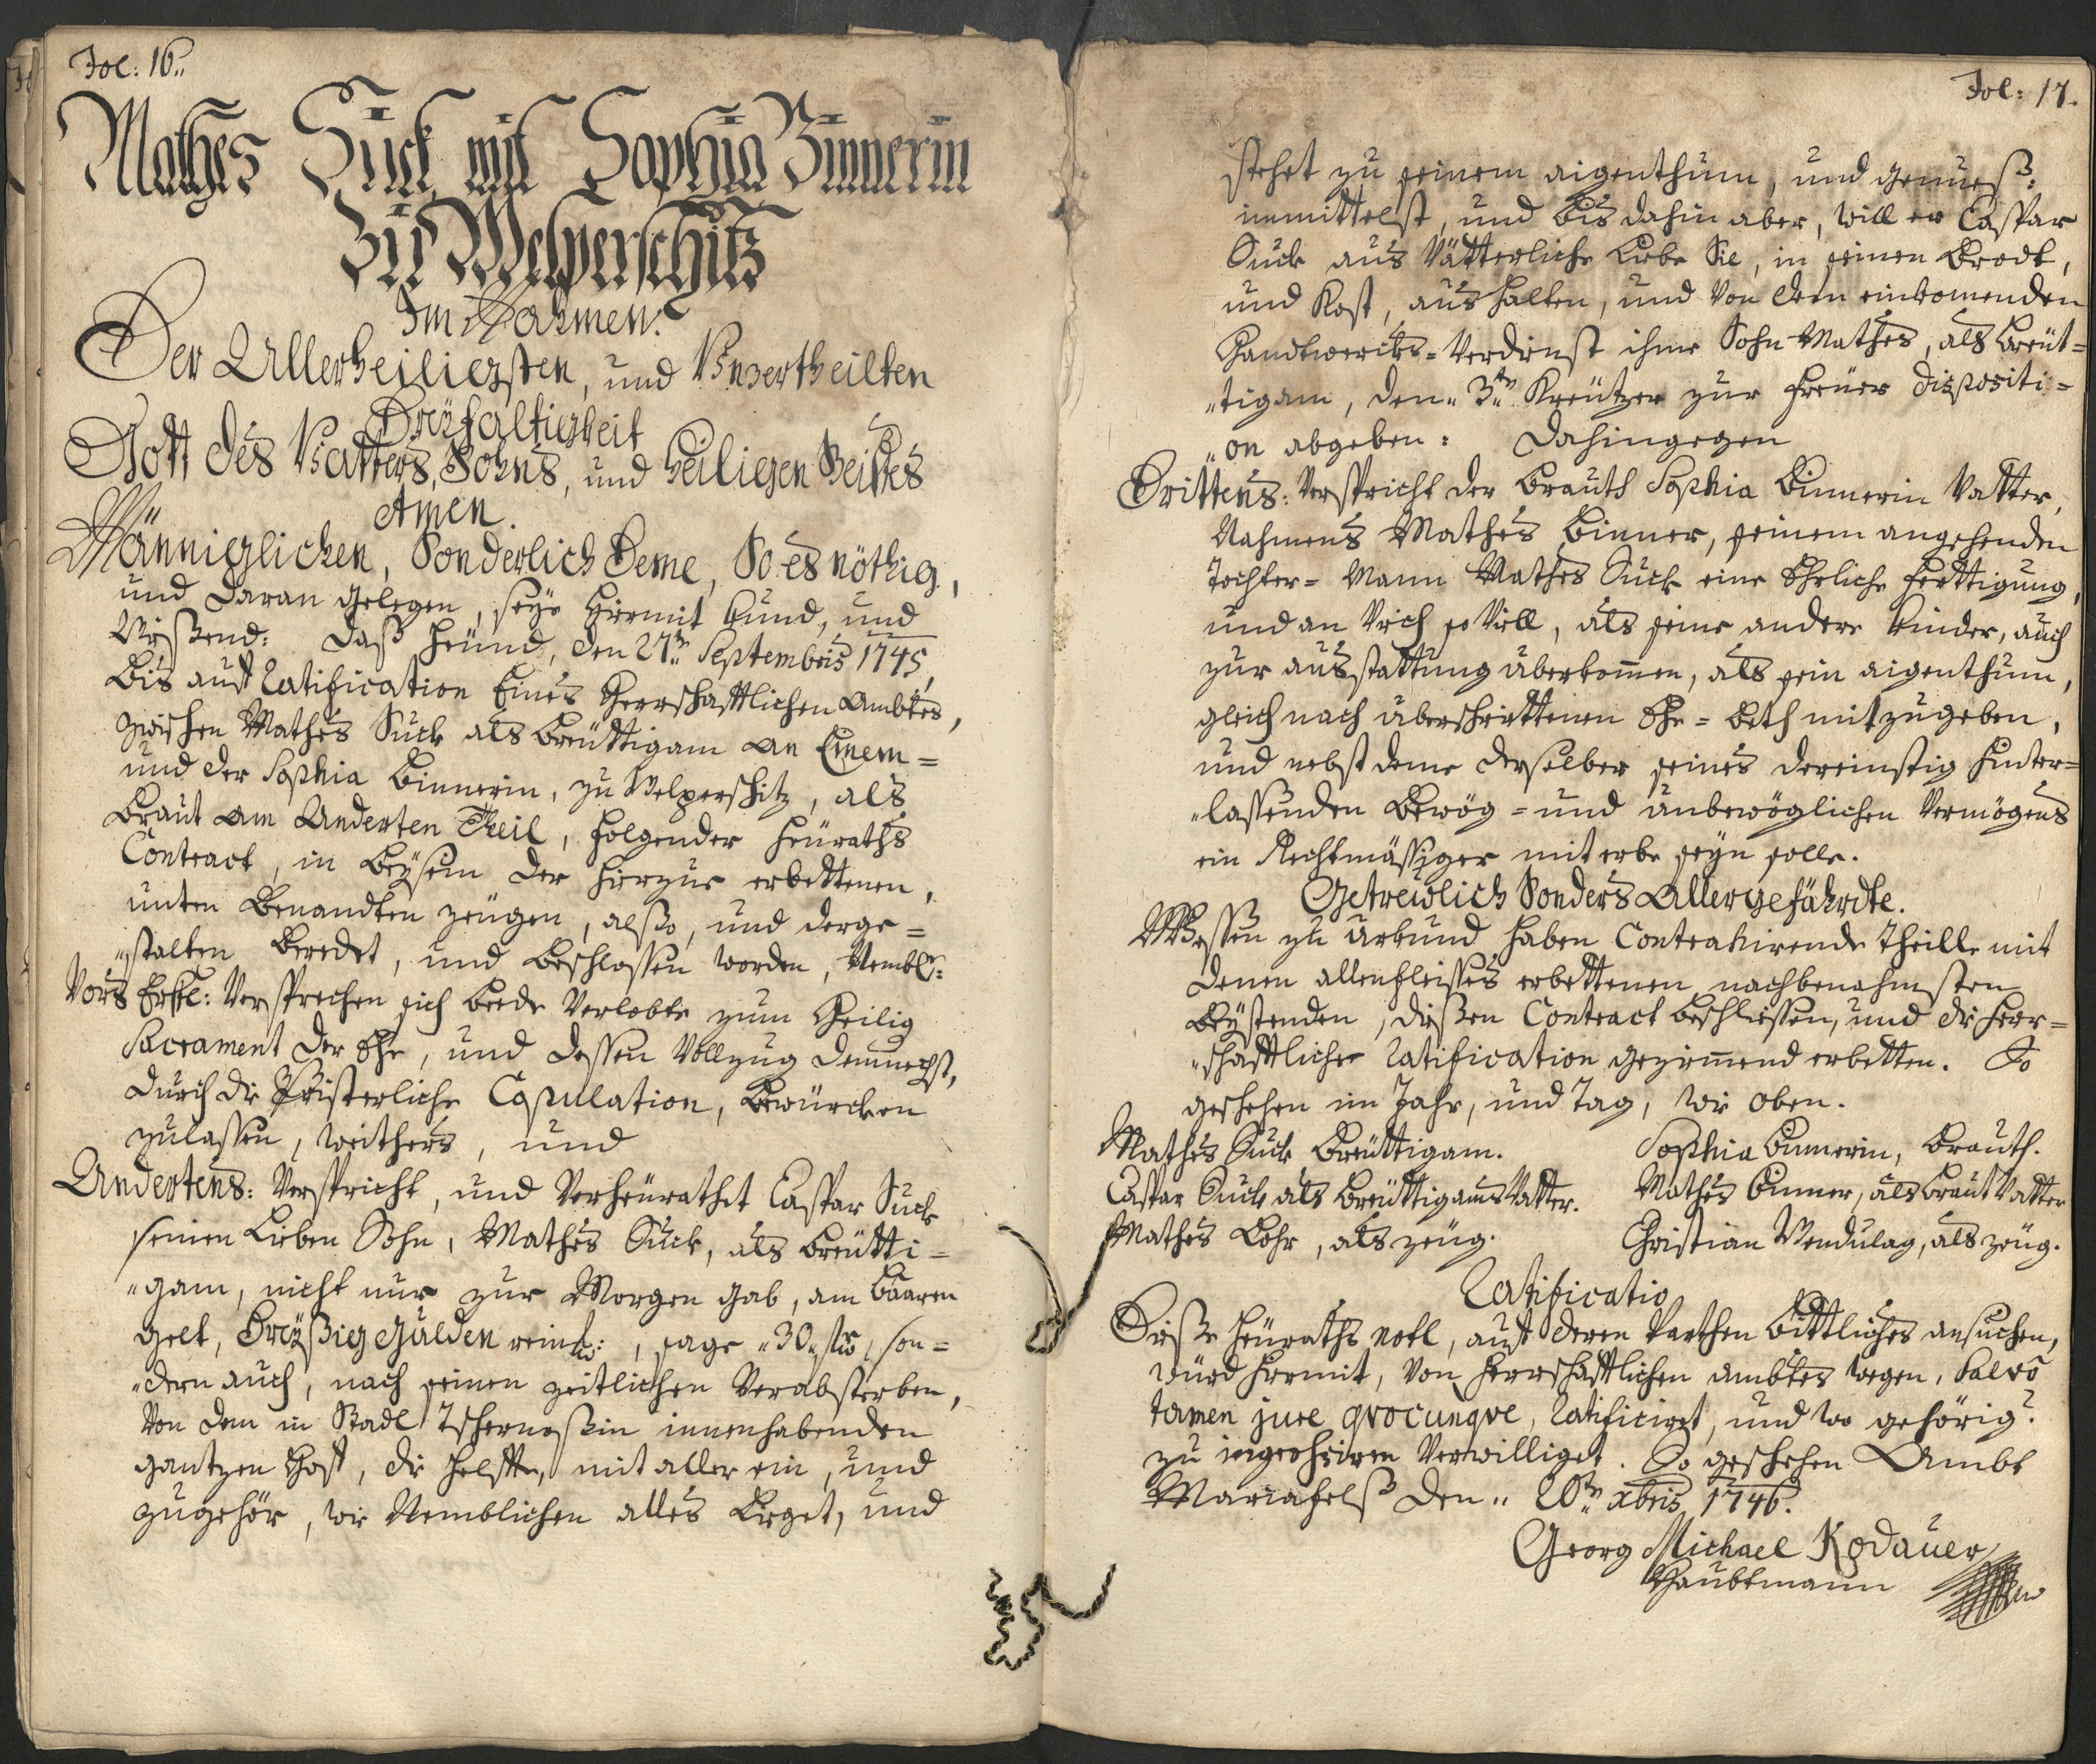 Fol: 16.
Mathes Suck mit Sophia Binnerin
Zu Welperschitz
Im Nahmen.
Der Allerheiligsten, und Unzertheilten
Dreÿfaltigkeit
Gott des Vatters, Sohns, und Heiligen Geistes
Amen.
Männiglichen, Sonderlich Deme, So es nöthig,
und daran gelegen, seÿe hiermit kund, und
Wißend: daß heünd, den 27ten Septembris 1745,
bis auf Ratification Eines Herrschafftlichen Ambtes,
zwischen Mathes Suck als Breüttigam an Einem=
und der Sophia Binnerin, zu Welperschitz, als
Braut am Anderten Theil, folgender Heüraths
Contract, in beÿsein der hierzue erbettenen,
unten benandten zeügen, also, und derge=
„stalten beredet, und beschlossen worden, Nembl:
Vors Erste: Versprechen sich beede Verlobte zum Heilig
Sacrament der Ehe, und dessen Vollzug demnechst,
durch die Pristerliche Copulation, bewürcken
zulassen, weithers, und
Andertens: Verspricht, und Verheürathet Caspar Suck
seinen Lieben Sohn, Mathes Suck, als Breütti=
„gam, nicht nur zur Morgen gab, am baaren
gelt, Dreÿßig Gulden rein:, sage „30„ fl, son=
„dern auch, nach seinen zeitlichen Verabsterben,
Von dem in Stadl Tschernoßin innenhabenden
gantzen Hoff, die helffte, mit aller ein, und
zugehör, wie Nemblichen alles Lieget, und
Fol: 17.
stehet zu seinem aigenthum, und genueß;
immittelst, und bis dahin aber, will er Caspar
Suck aus Vätterliche Liebe Sie, in seinen Brodt,
und Kost, aushalten, und Von dem einkomenden
Handtwercks=Verdienst ihme Sohn Mathes, als breüt=
„tigam, den „3ten Kreützer zur freüer dispositi=
„on abgeben: Dahingegen
Drittens: Verspricht der Brauth Sophia Binnerin Vatter,
Nahmens Mathes Binner, seinem angehenden
Tochter=Mann Mathes Suck eine Ehrliche ferttigung,
und an Vieh so Vill, als seine andere kinder, auch
zur ausstattung überkomen, als sein aigenthum,
gleich nach überschrittenen Ehe=Beth mitzugeben,
und nebst deme derselber seines dereinstig hinter=
„lassenden Bewög= und unbewöglichen Vermögens
ein Rechtmässiger miterbe seÿn solle.
Getreülich Sonders Aller gefährdte.
Wessen zu Urkund haben Contrahirende Theille mit
denen allenfleisses erbettenen nachbenahmsten
Beÿstenden, dießen Contract beschliessen, und die Herr=
„schafftliche Ratification gezimend erbetten. So
geschehen im Jahr, und Tag, wie oben.
Mathes Suck Breüttigam. Sophia Binnerin, Brauth.
Caspar Suck als Breüttigams Vatter. Mathes Binner, als Braut Vatter
Mathes Löhr, als zeüg. Christian Wendulag, als zeüg.
Ratificatio
Dieße Heüraths notl, auf deren Parthen bittliches ansuchen,
würd hiermit, Von Herrschafftlichen Ambtes wegen, Salvo
tamen jure qvocunqve, Ratificiret, und wo gehörig
zu ingrossiren Verwilliget. So geschehen Ambt
Mariafelß den „20ten xbris 1746.
Georg Michael Kodauer
Haubtmann